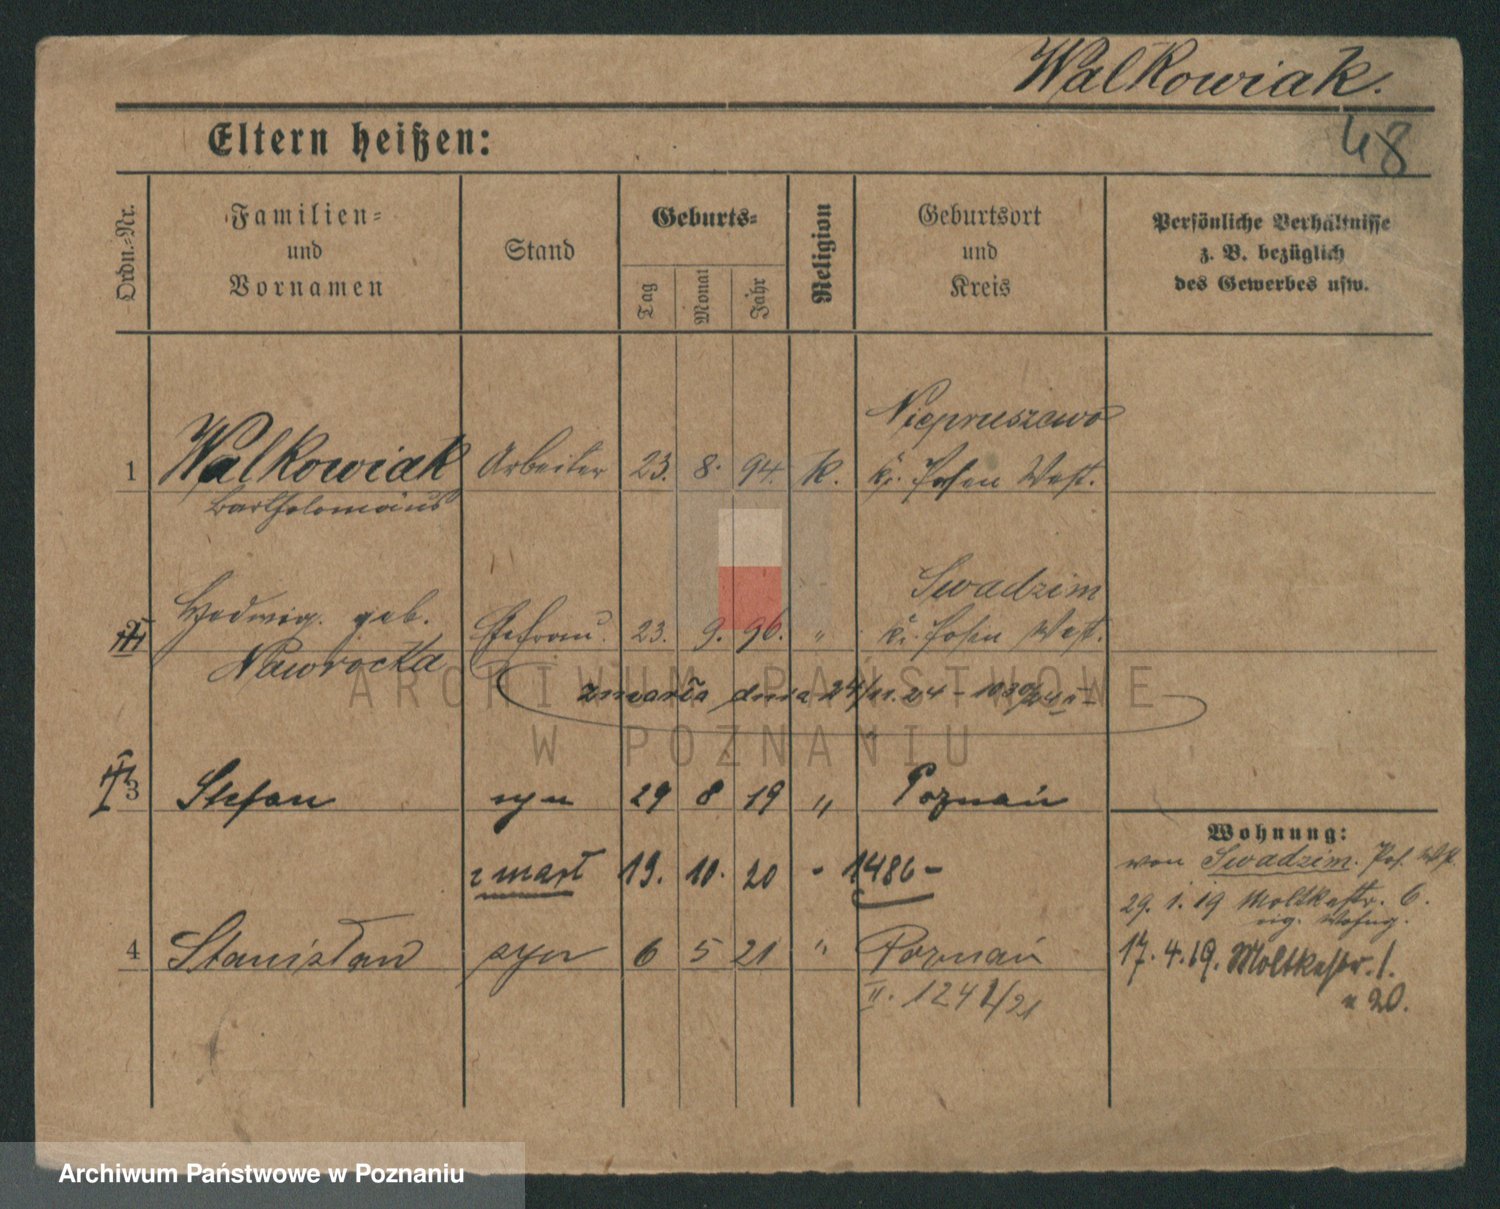 Walkowiak.
48
Eltern heißen:
Ordn.=Nr.
Familien=
und
Vornamen
Stand
Geburts=
Tag
Monat
Jahr
Religion
Geburtsort
und
Kreis
Persönliche Verhältnisse
z. B. bezüglich
des Gewerbes usw.
1
Walkowiak
Bartholomäus
Arbeiter
23. 8. 94. K.
Niepruszewo
Kr. Posen West.
2
Hedwig. geb.
Nawrocka
Ehefrau.
23. 9. 96. "
Swadzim
Kr. Posen West.
zmarła dnia 24/11. 24
3 Stefan syn 29 8 19 " Poznań
zmarł 19. 10. 20 - 1486 -
4 Stanisław syn 6 5 21 " Poznań
II. 1241/21
Wohnung:
von Swadzim. Pos. W.
29. 1. 19 Moltkestr. 6.
eig. Wohng.
17. 4. 19. Moltkestr. 1.
" 20.
ARCHIWUM PAŃSTWOWE
W POZNANIU
Archiwum Państwowe w Poznaniu